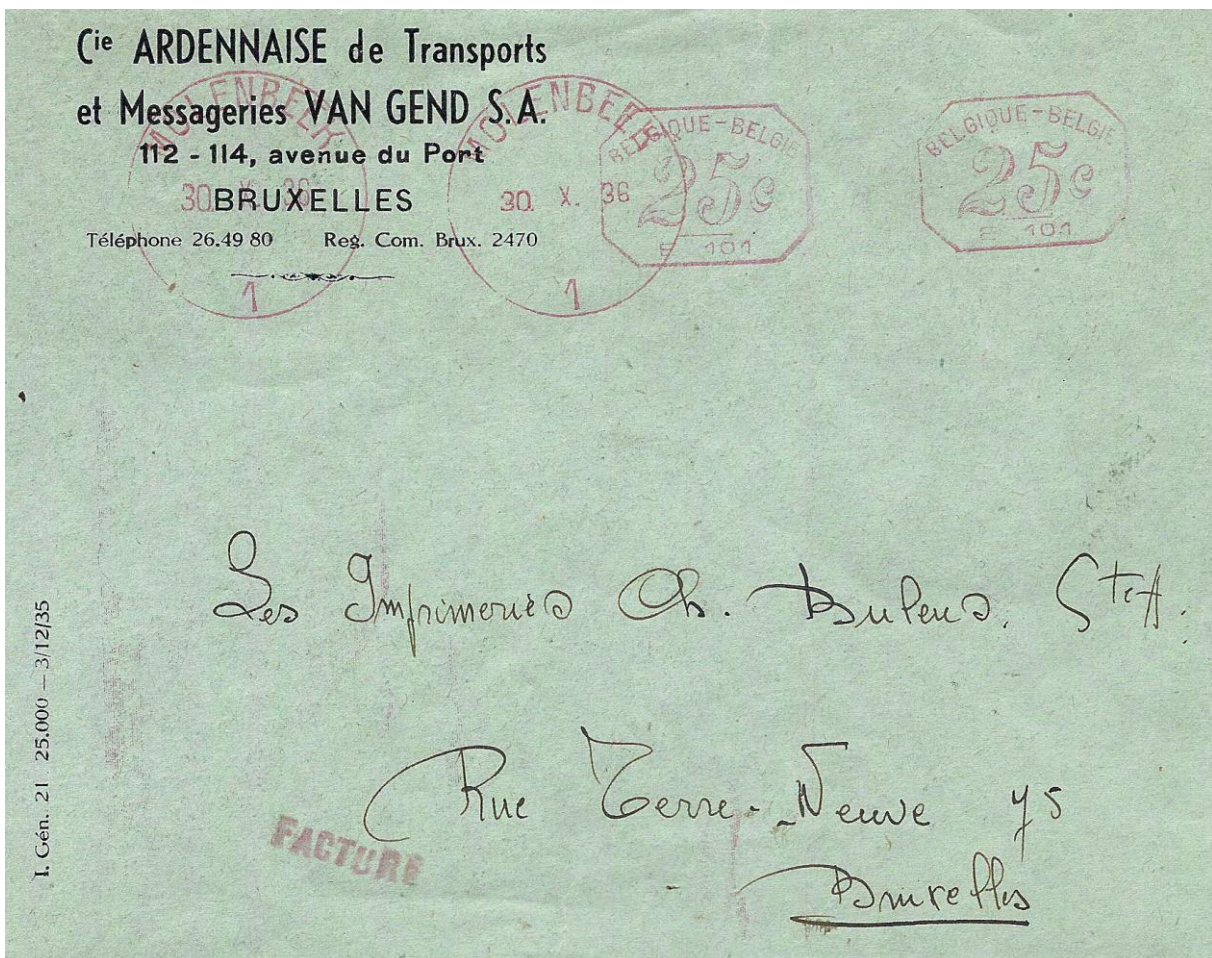 Cie ARDENNAISE de Transports
et Messageries VAN GEND S.A.
112 - 114, avenue du Port
BRUXELLES
Téléphone 26.49 80 Reg. Com. Brux. 2470
MOLENBEEK
30 X. 36
1
MOLENBEEK
30 X. 36
1
BELGIQUE-BELGIE
25c
101
BELGIQUE-BELGIE
25c
101
Les Imprimeries Ch. 
Rue Terre-Neuve 75
Bruxelles
FACTURE
I. Gén. 21 25.000 — 3/12/35